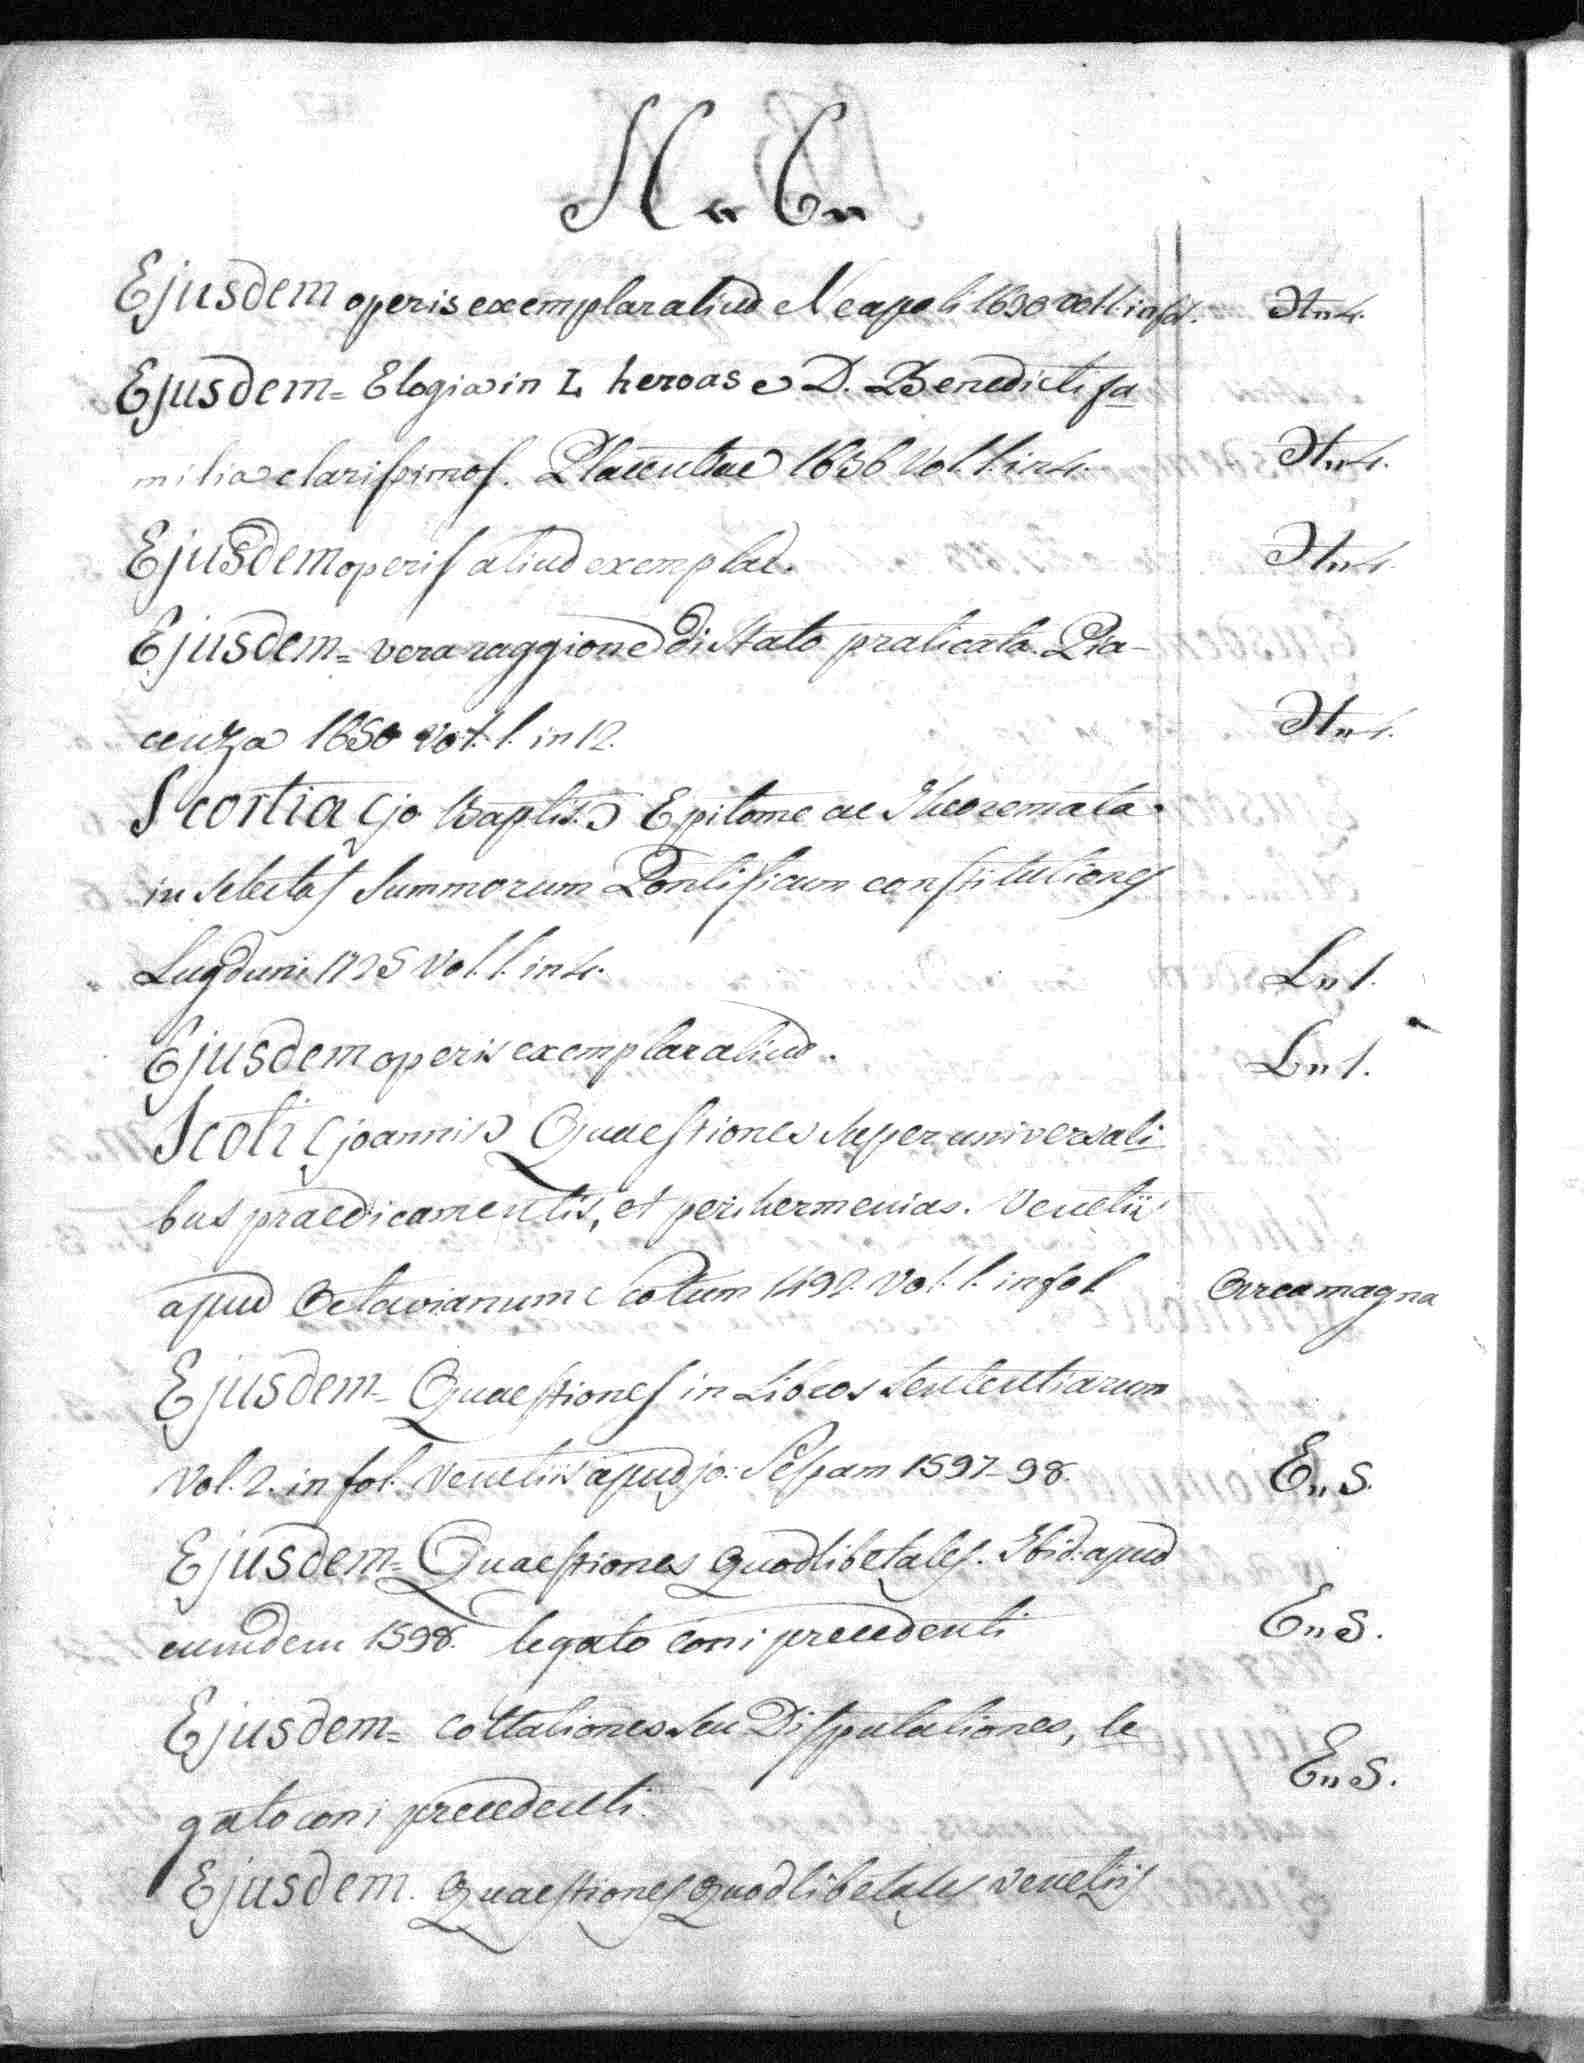 S „ C „
Ejusdem operis exemplar aliud Neapoli 1630 vol 1. in fol. H „ 4.
Ejusdem = Elogia in L heroas e D. Benedicti fa
milia clarissimos. Placentiae 1636 Vol. 1. in 4. H „ 4.
Ejusdem operis aliud exemplar. H „ 4.
Ejusdem = vera raggione di Stato praticata. Pia-
cenza 1650 vol. 1. in 12. H „ 4.
Scortia (jo Baptis.) Epitome ac Theoremata
in selectas Summorum Pontificum constitutiones
Lugduni 1725 Vol. 1. in 4. L „ 1.
Ejusdem operis exemplar aliud. L „ 1.
Scoti (joannis) Quaestiones super universali
bus praedicamentis, et perihermenias. Venetiis
apud Octavianum Scotum 1492. Vol. 1. in fol Arca magna
Ejusdem = Quaestiones in Libros Sententiarum
Vol. 2. in fol. Venetiis apud jo: Sessam 1597-98. E „ S.
Ejusdem = Quaestiones Quodlibetales. Ibid: apud
eumdem 1598. legato con i precedenti E „ S.
Ejusdem = Collationes seu Disputationes, le
gato con i precedenti. E „ S.
Ejusdem. Quaestiones Quodlibetales Venetiis